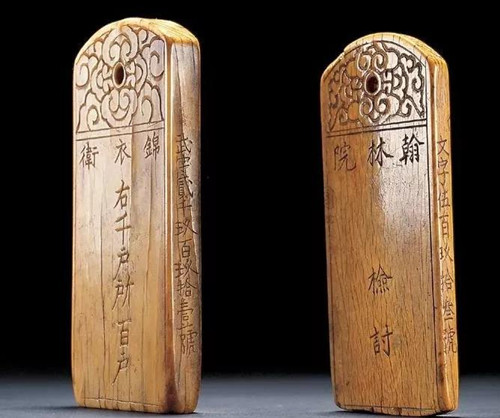 錦衣衛
右千戶所百戶
武字貳千玖百玖拾壹號
翰林院
檢討
文字伍百玖拾叄號